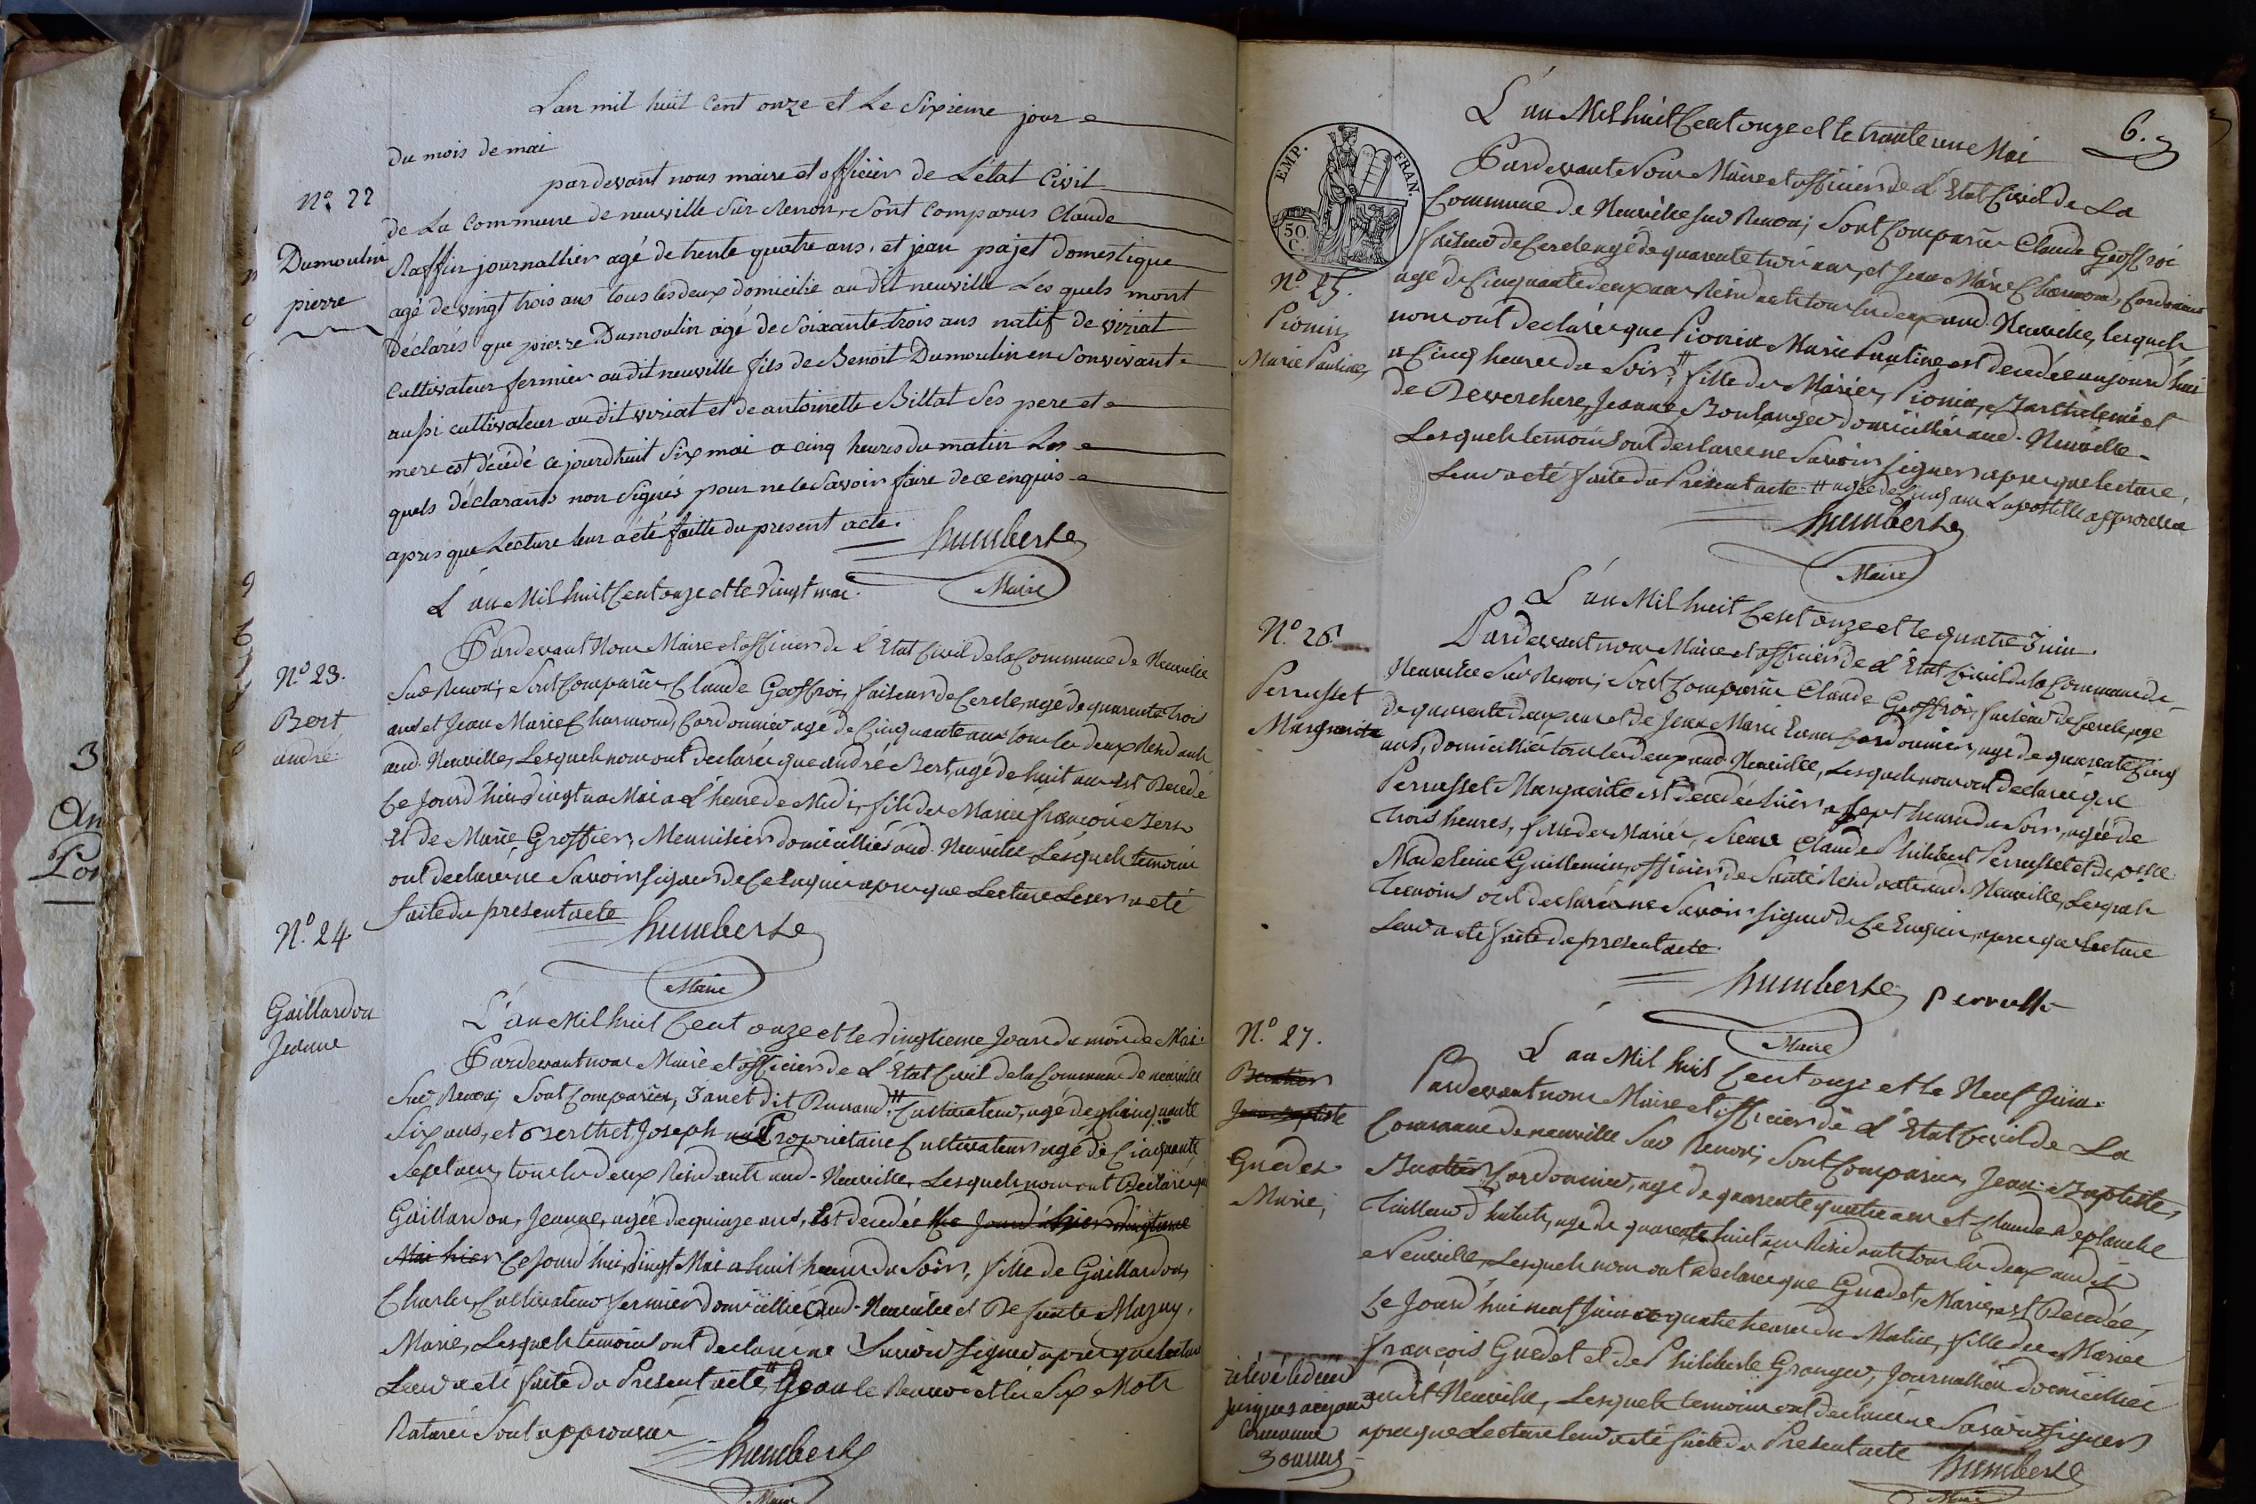 L'an mil huit cent onze et le sixieme jour
du mois de mai
N.º 22
Dumoulin
pierre
pardevant nous maire et officier de L'état Civil
de La commune de neuville sur Renon, sont comparus Claude
Raffin journallier agé de trente quatre ans, et jean pajet domestique
agé de vingt trois ans tous les deux domicilié au dit neuville Les quels mont
déclarés que pierre Dumoulin agé de soixante trois ans natif de viriat
cultivateur fermier au dit neuville fils de Benoit Dumoulin en son vivant
aussi cultivateur au dit viriat et de antoinette Billat ses pere et
mere est décédé ce jourdhuit six mai a cinq heures du matin Les
quels déclarants non signés pour ne le savoir faire de ce enquis
apres que Lecture leur a été faitte du present acte.
humbert
Maire
L'an Mil huit Cent onze et le vingt mai.
N.º 23.
Bert
andré
Pardevant Nous Maire et officier de L'Etat Civil de la Commune de Neuville
Sur Renon; Sont Comparûs Claude Geoffroi, faiseur de Cercle, agé de quarente trois
ans et Jean Marie Charmond, Cordonnier agé de Cinquante ans tous les deux Residants
aud. Neuville, Lesquels nous ont declarés que andré Bert, agé de huit ans est Decedé
Ce Jourd'hui vingt Mai a L'heure de Midi, fils de Mariés françois Bert
Et de Marie Groffier, Meunisier domicilliés aud. Neuville Lesquels temoins
ont declarés ne Savoir signer de Ce Enquis apres que Lecture Leur a eté
faite du present acte
humbert
Maire
N.º 24.
Gaillardon
Jeanne
L'an Mil huit Cent onze et le vingtieme Jour du mois de Mai.
Pardevant nous Maire et officier de L'Etat Civil de la Commune de neuville
Sur Renon; Sont Comparûs, Janet dit Cultivateur, agé de Cinquante
Six ans, et Berthet Joseph Proprietaire Cultivateur agé de Cinquante
Sept ans, tous les deux Residants aud. Neuville, Lesquels nous ont Declarés que
Gaillardon, Jeanne, agée de quinze ans, est decedée Ce Jourd'hier vingt une
Mai hier Ce Jourd'hui, vingt Mai a huit heures du Soir, fille de Gaillardon,
Charles, Cultivateur fermier domicillié aud. Neuville et De funte Mazuy,
Marie, Lesquels temoins ont declarés ne Savoir signer apres que lecture
Leur a eté faite du Present acte, et les Six Mots
Raturés Sont approuvés
humbert
Maire
6.
L'an Mil huit Cent onze et le trante une Mai
EMP. FRAN.
50. C.
N.º 25.
Pionin,
Marie Pauline,
Pardevant Nous Maire et officier de L'Etat Civil de La
Commune de Neuville sur Renon; Sont Comparûs Claude Geoffroi
faiseur de Cercle agé de quarente trois ans, et Jean Marie Charmond, Cordonnier
agé de Cinquante deux ans Residants tous les deux aud. Neuville, lesquels
nous ont declarés que Pionin Marie Pauline est decedée aujourd'hui
a Cinq heures du Soir, fille de Mariés, Pionin, Barthelemi et
de Deverchere, Jeanne Boulanger domicilliés aud. Neuville
Lesquels temoins ont declarés ne Savoir signer apres que lecture,
Leur a eté faite du Present acte agée de Cinq ans L'apostille approuvée
humbert
Maire
L'an Mil huit Cent onze et le quatre Juin.
N.º 26.
Perrusset
Marguerite
Pardevant nous Maire et officier de L'Etat Civil de la Commune de
Neuville Sur Renon; Sont Comparûs Claude Geoffroi, faiseur de Cercle, age
de quarente deux ans et de Jean Marie Cordonnier, agé de quarente Cinq
ans, domicillié tous les deux aud. Neuville, Lesquels nous ont declarés que
Perrusset Marguerite est decedée hier a sept heures du Soir, agée de
trois heures, fille de Mariés, Sieur Claude Philibert Perrusset et de
Madeleine Guillemin, officier de Santé Residants aud. Neuville, Lesquels
temoins ont declarés ne Savoir signer de Ce Enquis, apres que Lecture
Leur a eté faite du present acte.
humbert
Maire
N.º 27.
Guedet
Marie,
L'an Mil huit Cent onze et le Neuf Juin.
Pardevant nous Maire et officier de L'Etat Civil de La
Commune de neuville Sur Renon; Sont Comparûs, Jean Baptiste,
Cordonnier, agé de quarente quatre ans et Claude Deplanche
Tailleur d'habits, agé de quarente huit ans Residants tous les deux audit
Neuville, Lesquels nous ont declarés que Guedet, Marie, est Decedée,
Ce Jourd'hui neuf Juin a quatre heures du Matin, fille de Mariés
françois Guedet et de Philiberte Granger, Journallier domicilliés
audit Neuville, Lesquels temoins ont declarés ne Savoir signer
apres que Lecture leur a eté faite du Present acte
humbert
Maire